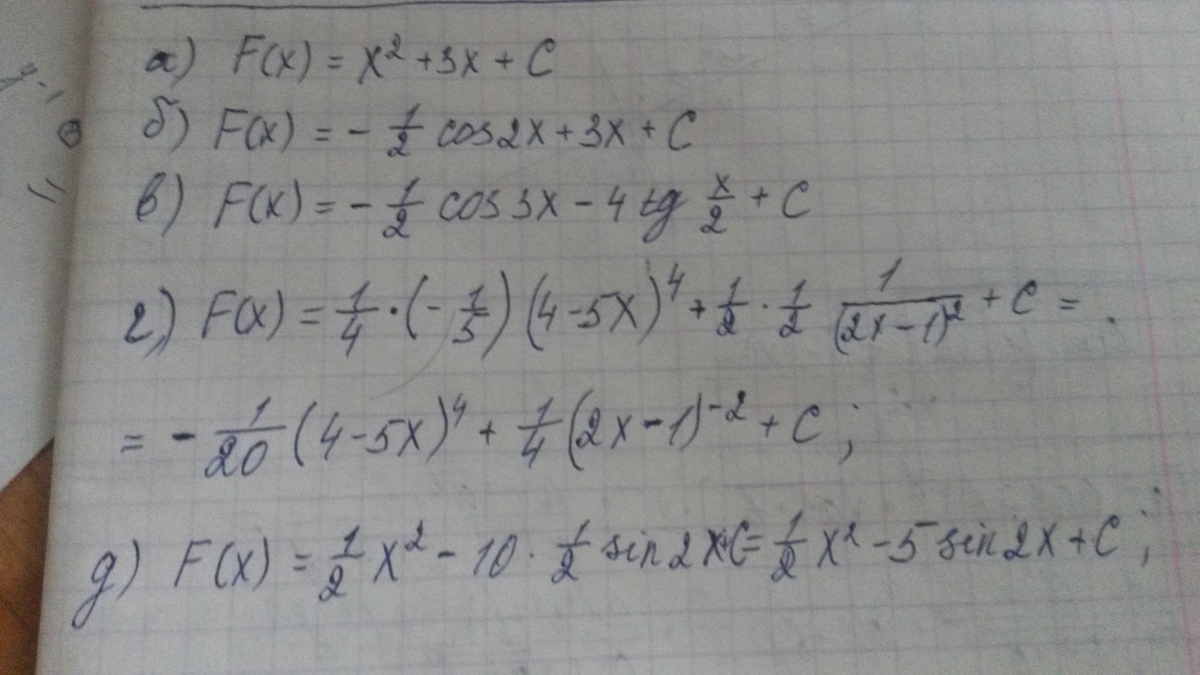 а) F(x) = x² + 3x + C
б) F(x) = - 1/2 cos2x + 3x + C
в) F(x) = - 1/2 cos 3x - 4 tg x/2 + C
г) F(x) = 1/4 · (- 1/5) (4 - 5x)⁴ + 1/2 · 1/2 1/(2x - 1)² + C =
= - 1/20 (4 - 5x)⁴ + 1/4 (2x - 1)⁻² + C ;
д) F(x) = 1/2 x² - 10 · 1/2 sin 2x + C = 1/2 x² - 5 sin 2x + C ;